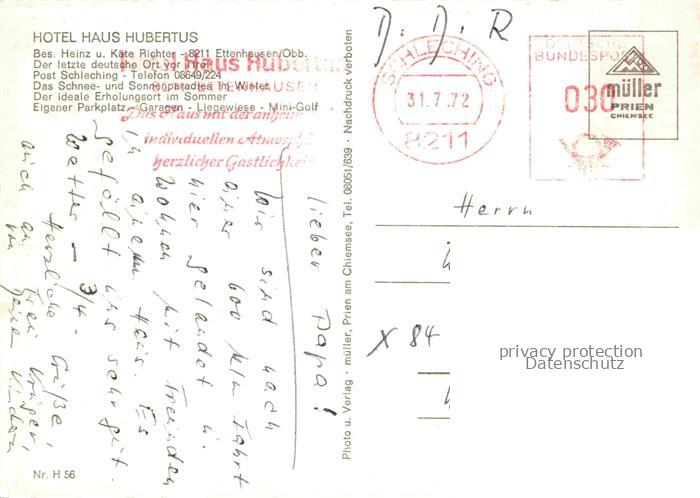 HOTEL HAUS HUBERTUS
Bes. Heinz u. Käte Richter - 8211 Ettenhausen/Obb.
Der letzte deutsche Ort vor Tirol
Post Schleching - Telefon 08649/224
Das Schnee- und Sonnenparadies im Winter
Der ideale Erholungsort im Sommer
Eigener Parkplatz - Garagen - Liegewiese - Mini-Golf
Haus Hubertus
ETTENHAUSEN
Das Haus mit der
individuellen
herzlicher Gastlichkeit
lieber Papa!
Wir sind nach
einer 600 Klm Fahrt
hier gelandet u.
wohnen mit Freunden
in einem Haus. Es
gefällt uns sehr gut.
Wetter - 3/4 -
Herzliche Grüße,
auch an
von Deinen Kindern
Nr. H 56
Photo u. Verlag · müller, Prien am Chiemsee, Tel. 08051/639 · Nachdruck verboten
D. D. R
SCHLECHING
31.7.72
8211
DEUTSCHE
BUNDESPOST
030
müller
PRIEN
CHIEMSEE
Herrn
X 84
privacy protection
Datenschutz